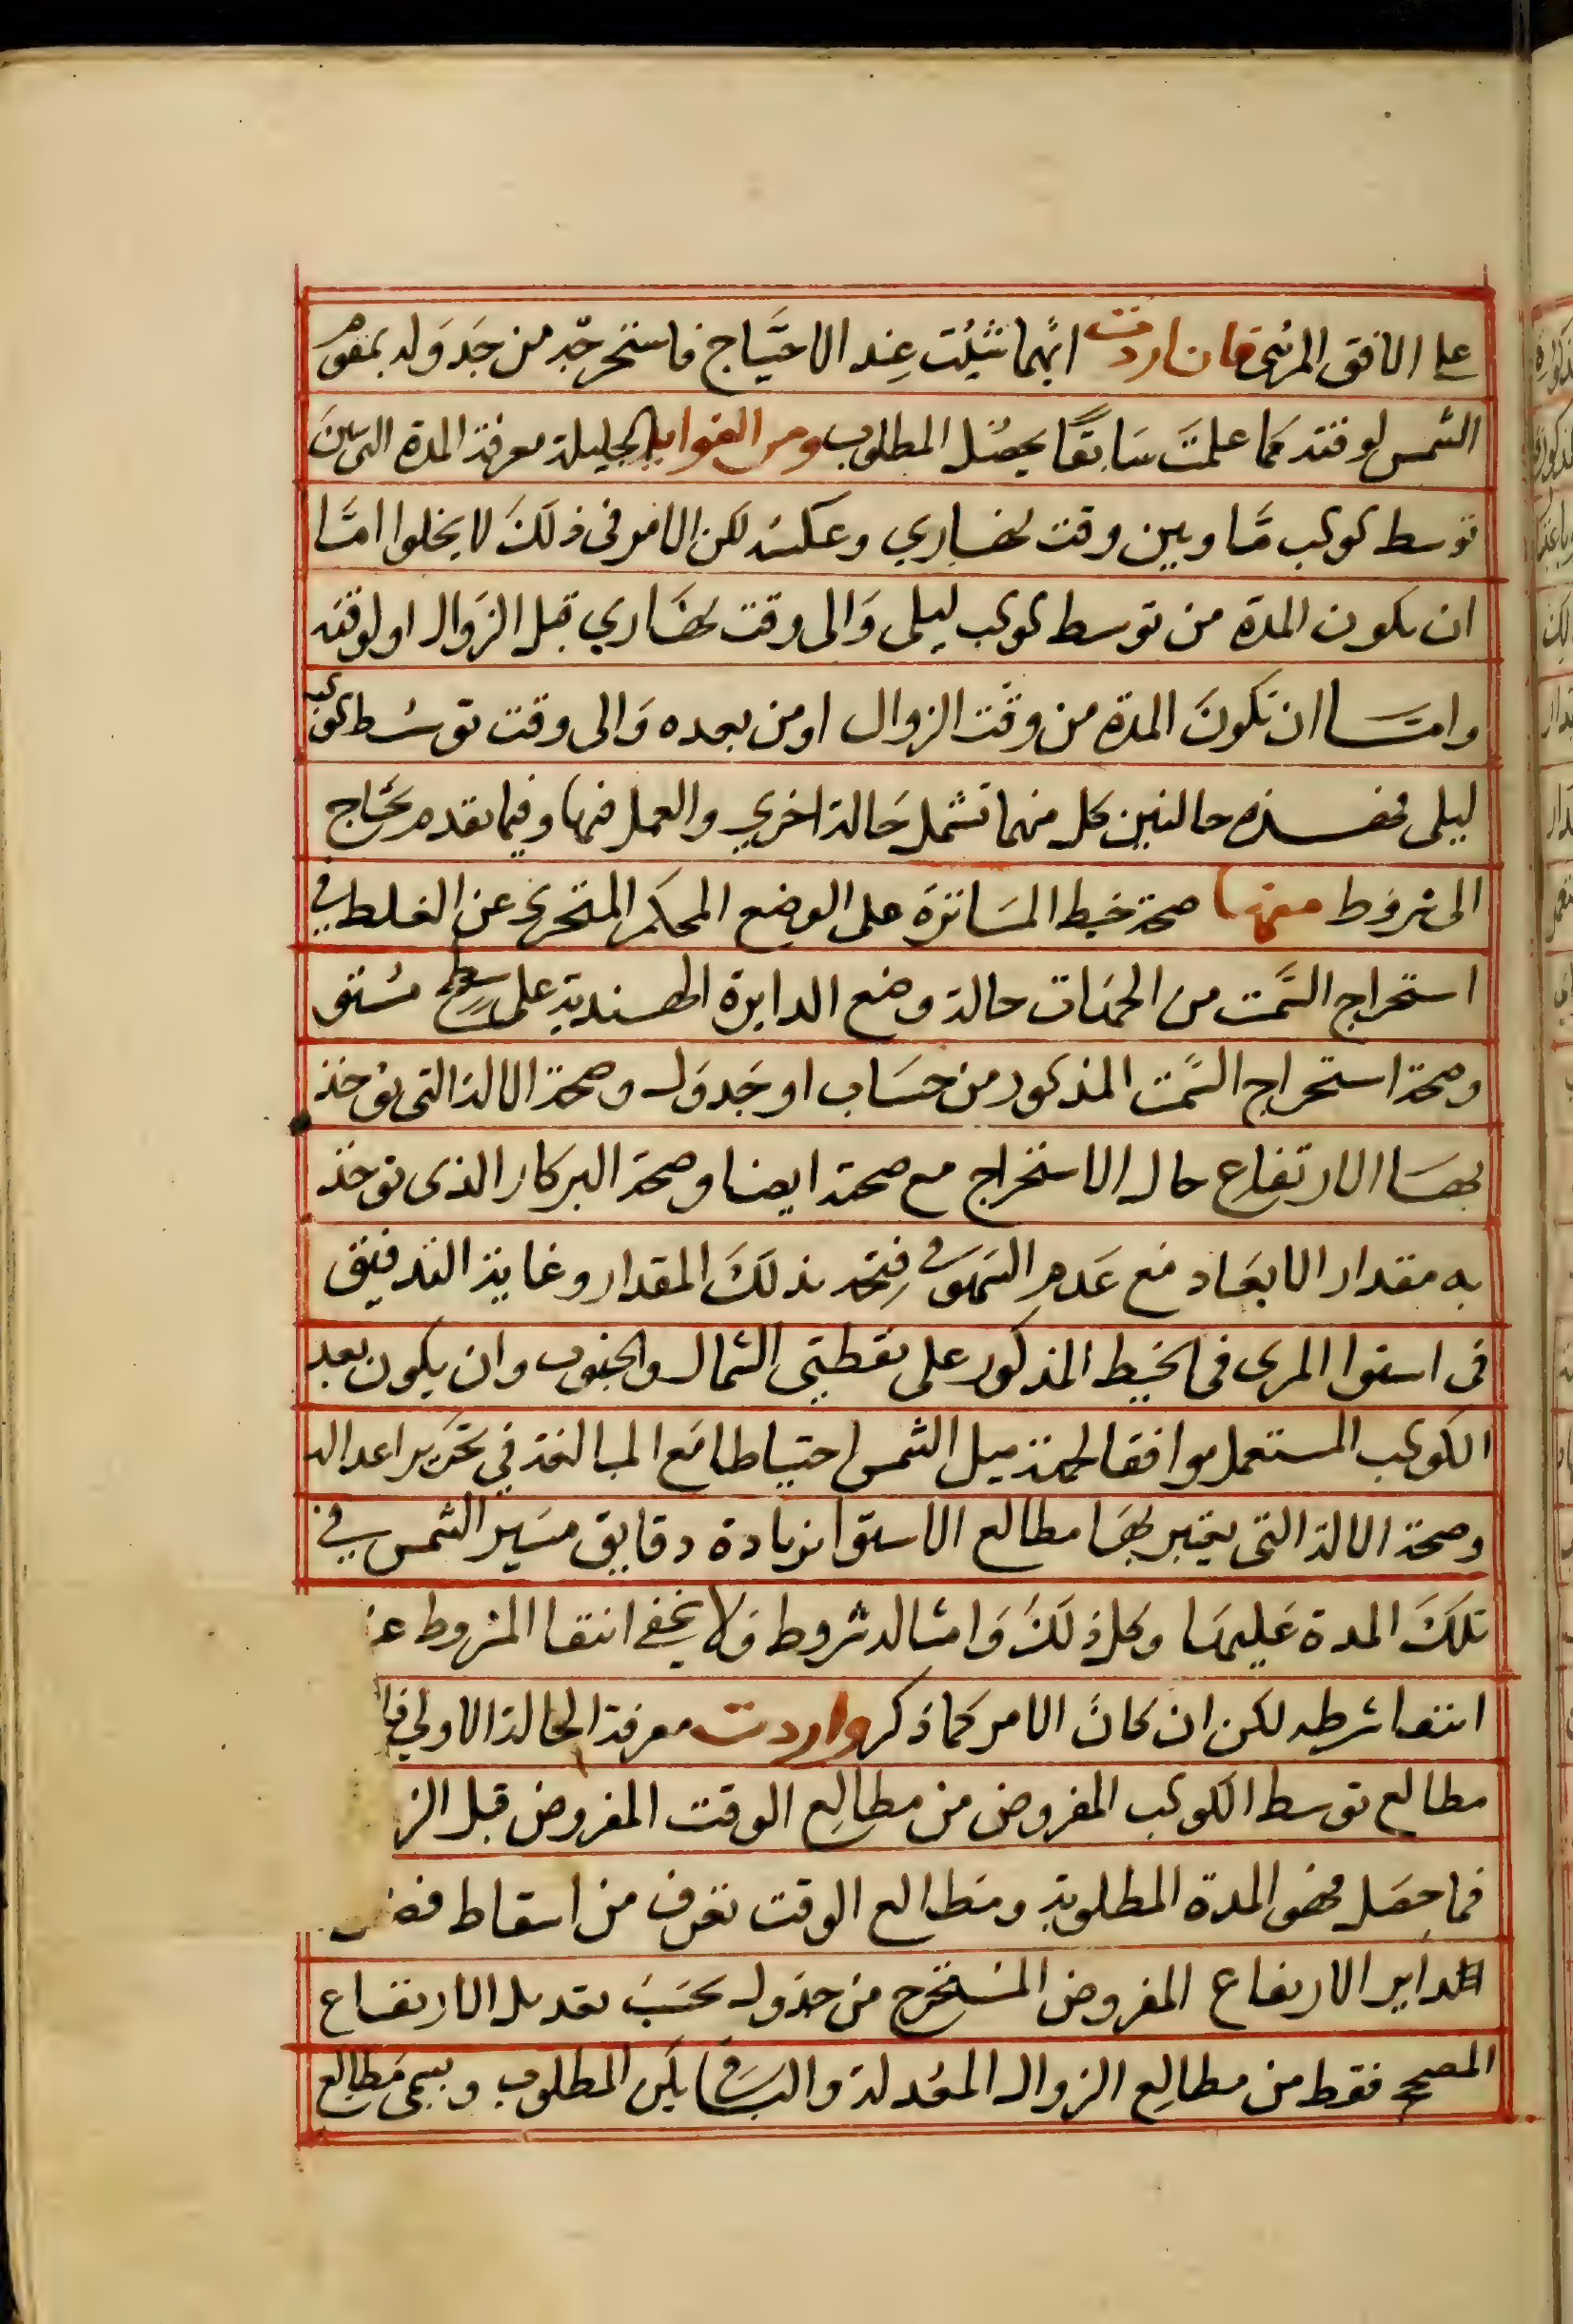 على الافق المرئى فان اردت ايهما شئت عند الاحتياج فاستخرجه من جدوله بمقوم
الشمس لوقته كما علمت سابقا يحصل المطلوب ومن الفوايد الجليلة معرفة المدة التى بين
توسط كوكب ما وبين وقت نهاري وعكسه لكن الامر فى ذلك لا يخلوا اما
ان يكون المدة من توسط كوكب ليلى والى وقت نهاري قبل الزوال او لوقته
واما ان تكون المدة من وقت الزوال او من بعده والى وقت توسط كوكب
ليلى فهذه حالتين كل منهما تشمل حالة اخري والعمل فيها وفيما تقدم يحتاج
الى شروط منها صحة خيط المساترة على الوضع المحكم المتحرى عن الغلط في
استخراج السمت من الجهات حالة وضع الدايرة الهندية على سطح مستو
وصحة استخراج السمت المذكور من حساب او جدول وصحة الالة التى يوخذ
بها الارتفاع حال الاستخراج مع صحته ايضا وصحة البركار الذى توخذ
به مقدار الابعاد مع عدم السهو في فتحه بذلك المقدار وغاية التدقيق
فى استوا المرى فى الخيط المذكور على نقطتى الشمال والجنوب وان يكون بعد
الكوكب المستعمل موافقا لجهة ميل الشمس احتياطا مع المبالغة في تحرير اعداله
وصحة الالة التى يعتبر بها مطالع الاستوا بزيادة دقايق مسير الشمس في
تلك المدة عليها وكل ذلك وامثاله شروط ولا يخفى انتفا المشروط
انتفا شرطه لكن ان كان الامر كما ذكر واردت معرفة الحالة الاولى
مطالع توسط الكوكب المفروض من مطالع الوقت المفروض قبل الز
فما حصل فهو المدة المطلوبة ومطالع الوقت تعرف من اسقاط فضل
داير الارتفاع المفروض المستخرج من جدوله بحسب تعديل الارتفاع
المصحح فقط من مطالع الزوال المعدلة والباقي يكن المطلوب ويسمى مطالع